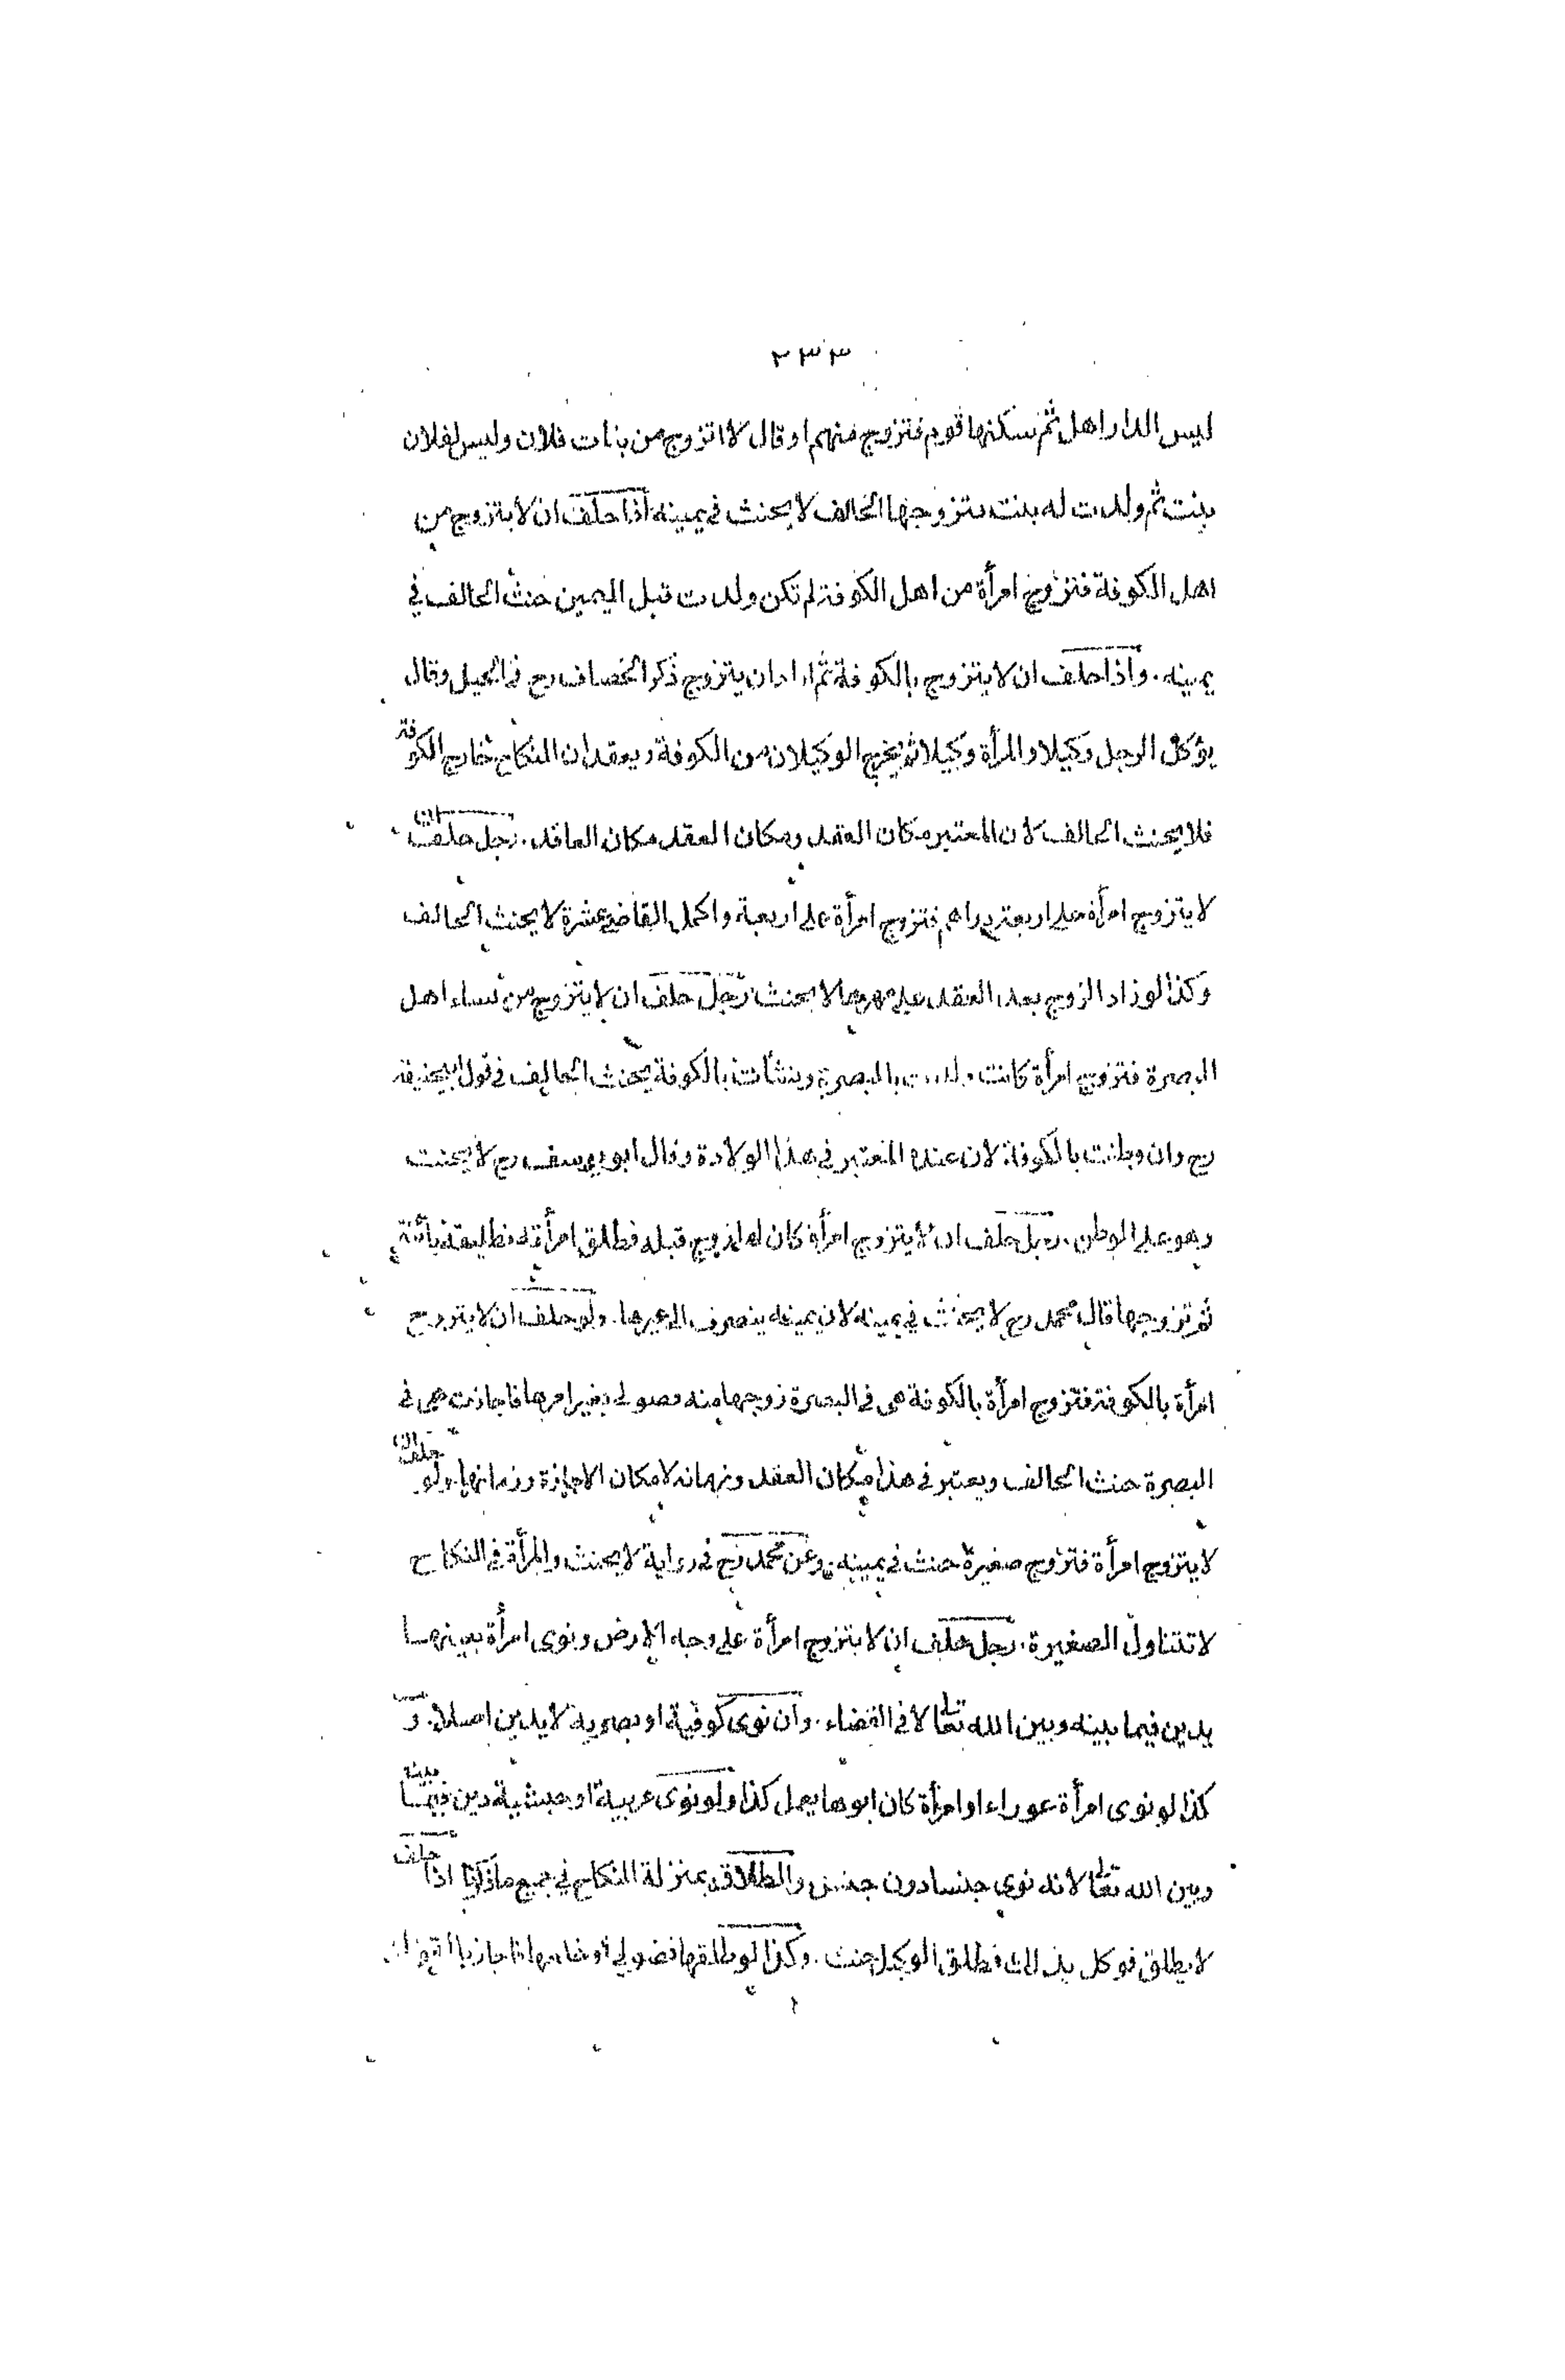 ٢٣٣
ليس الدار اهل ثم سكنها قوم فتزوج منهم او قال لا اتزوج من بنات فلان وليس لفلان
بنت ثم ولدت له بنت فتزوجها الحالف لا يحنث في يمينه اذا حلف ان لا يتزوج من
اهل الكوفة فتزوج امرأة من اهل الكوفة لم تكن ولدت قبل اليمين حنث الحالف في
يمينه . واذا حلف ان لا يتزوج بالكوفة ثم اراد ان يتزوج ذكر الخصاف رح في الحيل وقال
يؤكل الرجل وكيلا والمرأة وكيلا ثم يخرج الوكيلان من الكوفة ويعقدان النكاح خارج الكوفة
فلا يحنث الحالف لان المعتبر مكان العقد ومكان العقد مكان العاقد . رجل حلف ان
لا يتزوج امرأة على اربعة دراهم فتزوج امرأة على اربعة واكمل القاضي عشرة لا يحنث الحالف
وكذا لو زاد الزوج بعد العقد على مهرها لا يحنث رجل حلف ان لا يتزوج من نساء اهل
البصرة فتزوج امرأة كانت ولدت بالبصرة ونشأت بالكوفة يحنث الحالف في قول ابيحنيفة
رح وان وطنت بالكوفة لان عنده المعتبر في هذا الولادة وقال ابو يوسف رح لا يحنث
وهو على الوطن . رجل حلف ان لا يتزوج امرأة كان لها زوج قبله فطلق امرأته تطليقة بائنة
ثم تزوجها قال محمد رح لا يحنث في يمينه لان يمينه ينصرف الى غيرها . ولو حلف ان لا يتزوج
امرأة بالكوفة فتزوج امرأة بالكوفة هي في البصرة زوجها منه فضولي بغير امرها فاجازت هي في
البصرة حنث الحالف ويعتبر في هذا مكان العقد وزمانه لا مكان الاجازة وزمانها . ولو حلف ان
لا يتزوج امرأة فتزوج صغيرة حنث في يمينه . وعن محمد رح في رواية لا يحنث والمرأة في النكاح
لا تتناول الصغيرة . رجل حلف ان لا يتزوج امرأة على وجه الارض ونوى امرأة بعينها
يدين فيما بينه وبين الله تعالى لا في القضاء . وان نوى كوفية او بصرية لا يدين اصلا . و
كذا لو نوى امرأة عوراء او امرأة كان ابوها يعمل كذا ولو نوى عربية او حبشية دين فيما بينه
وبين الله تعالى لانه نوى جنسا دون جنس والطلاق بمنزلة النكاح في جميع ما ذكرنا اذا حلف
لا يطلق فوكل بذلك فطلق الوكيل حنث . وكذا لو طلقها فضولي